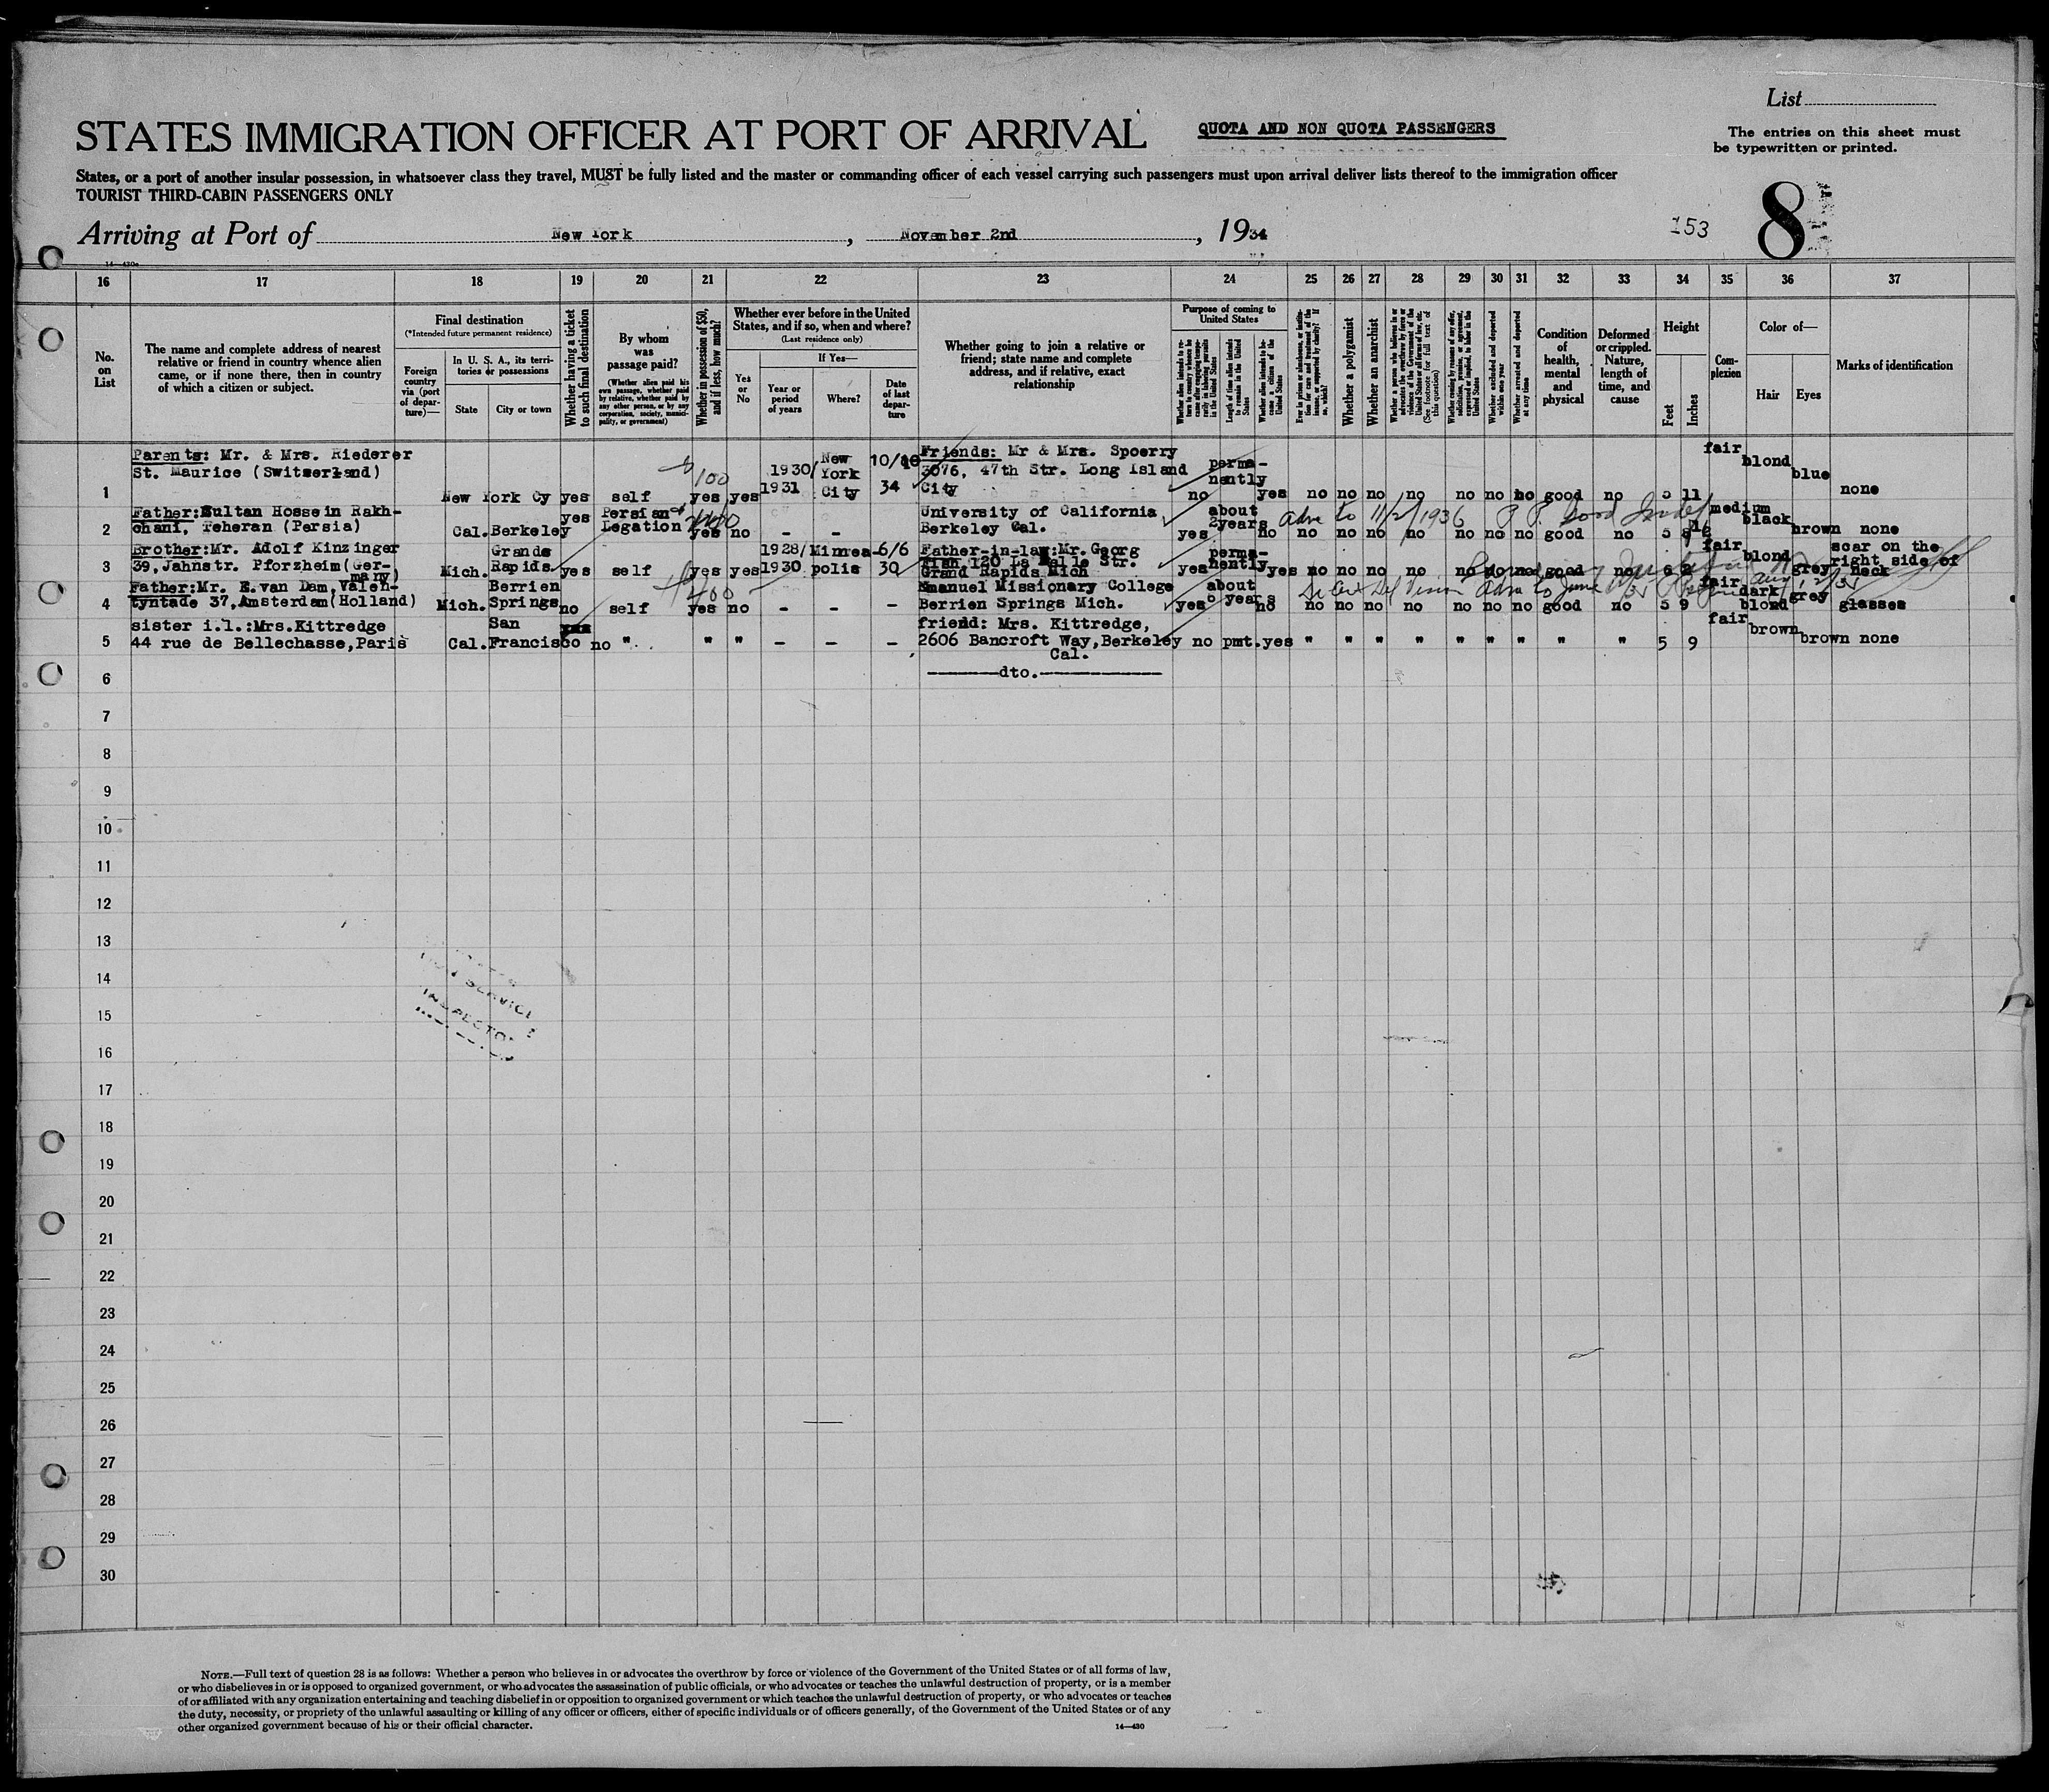 List
STATES IMMIGRATION OFFICER AT PORT OF ARRIVAL
QUOTA AND NON QUOTA PASSENGERS
The entries on this sheet must
be typewritten or printed.
States, or a port of another insular possession, in whatsoever class they travel, MUST be fully listed and the master or commanding officer of each vessel carrying such passengers must upon arrival deliver lists thereof to the immigration officer
TOURIST THIRD-CABIN PASSENGERS ONLY
Arriving at Port of New York, November 2nd, 1934
153
8
16 17 18 19 20 21 22 23 24 25 26 27 28 29 30 31 32 33 34 35 36 37
No. on List
The name and complete address of nearest
relative or friend in country whence alien
came, or if none there, then in country
of which a citizen or subject.
Final destination
(*Intended future permanent residence)
Foreign country via (port of departure)—
In U. S. A., its territories or possessions
State
City or town
Whether having a ticket to such final destination
By whom was passage paid?
(Whether alien paid his own passage, whether paid by relative, whether paid by any other person, or by any corporation, society, municipality, or government)
Whether in possession of $50, and if less, how much?
Whether ever before in the United States, and if so, when and where?
(Last residence only)
Yes or No
If Yes—
Year or period of years
Where?
Date of last departure
Whether going to join a relative or
friend; state name and complete
address, and if relative, exact
relationship
Purpose of coming to United States
Length of time alien intends to remain in the United States
Whether alien intends to become a citizen of the United States
Whether a polygamist
Whether an anarchist
Whether excluded and deported within one year
Whether arrested and deported at any time
Condition of health, mental and physical
Deformed or crippled. Nature, length of time, and cause
Height
Feet
Inches
Complexion
Color of—
Hair
Eyes
Marks of identification
1 Parents: Mr. & Mrs. Riederer
St. Maurice (Switzerland)
New York Cy yes self 100 yes yes 1930/1931 New York City 10/10 34
Friends: Mr & Mrs. Spoerry
3076, 47th Str. Long Island
City
no permanently yes no no no no no no no good no 5 11 fair blond blue none
2 Father:Sultan Hossein Rakh-
chani, Teheran (Persia)
Cal. Berkeley yes Persian Legation yes no - -
University of California
Berkeley Cal.
yes about 2years no no no no no no no no good no 5 medium black brown none
to 11/2/1936
3 Brother:Mr. Adolf Kinzinger
39, Jahnstr. Pforzheim (Germany)
Mich. Grands Rapids yes self yes yes 1928/1930 6/6 30
Father-in-law:Mr. Georg
Grand Rapids Mich
yes permanently yes no no no no no no no good no fair blond grey scar on the
right side of
neck
4 Father:Mr. E. van Dam, Valen-
tyntade 37, Amsterdam (Holland)
Mich. Berrien Springs no self 400 yes no - - -
Emanuel Missionary College
Berrien Springs Mich.
yes about years no no no no no no no no good no 5 9 fair dark blond grey glasses
5 sister i.l.:Mrs.Kittredge
44 rue de Bellechasse, Paris
Cal. San Francisco no " " " - - -
friend: Mrs. Kittredge,
2606 Bancroft Way, Berkeley
Cal.
no pmt. yes " " " " " " " " " 5 9 fair brown brown none
6 dto.
7
8
9
10
11
12
13
14
15
16
17
18
19
20
21
22
23
24
25
26
27
28
29
30
SERVICE
INSPECTOR
NOTE.—Full text of question 28 is as follows: Whether a person who believes in or advocates the overthrow by force or violence of the Government of the United States or of all forms of law,
or who disbelieves in or is opposed to organized government, or who advocates the assassination of public officials, or who advocates or teaches the unlawful destruction of property, or is a member
of or affiliated with any organization entertaining and teaching disbelief in or opposition to organized government or which teaches the unlawful destruction of property, or who advocates or teaches
the duty, necessity, or propriety of the unlawful assaulting or killing of any officer or officers, either of specific individuals or of officers generally, of the Government of the United States or of any
other organized government because of his or their official character.
14—430